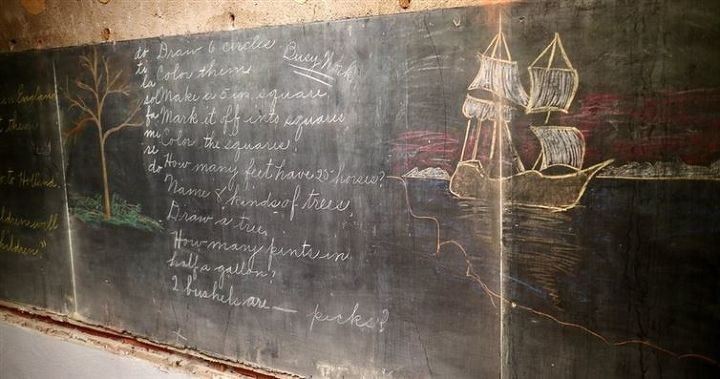 in England
them
to Holland.
children will
children."
Busy Work
do Draw 6 circles.
ti Color them
la
sol Make a 5 in. square
fa Mark it off into squares
mi Color the squares.
re
do How many feet have 25 horses?
Name 8 kinds of trees.
Draw a tree.
How many pints in
half a gallon?
2 bushels are — pecks?